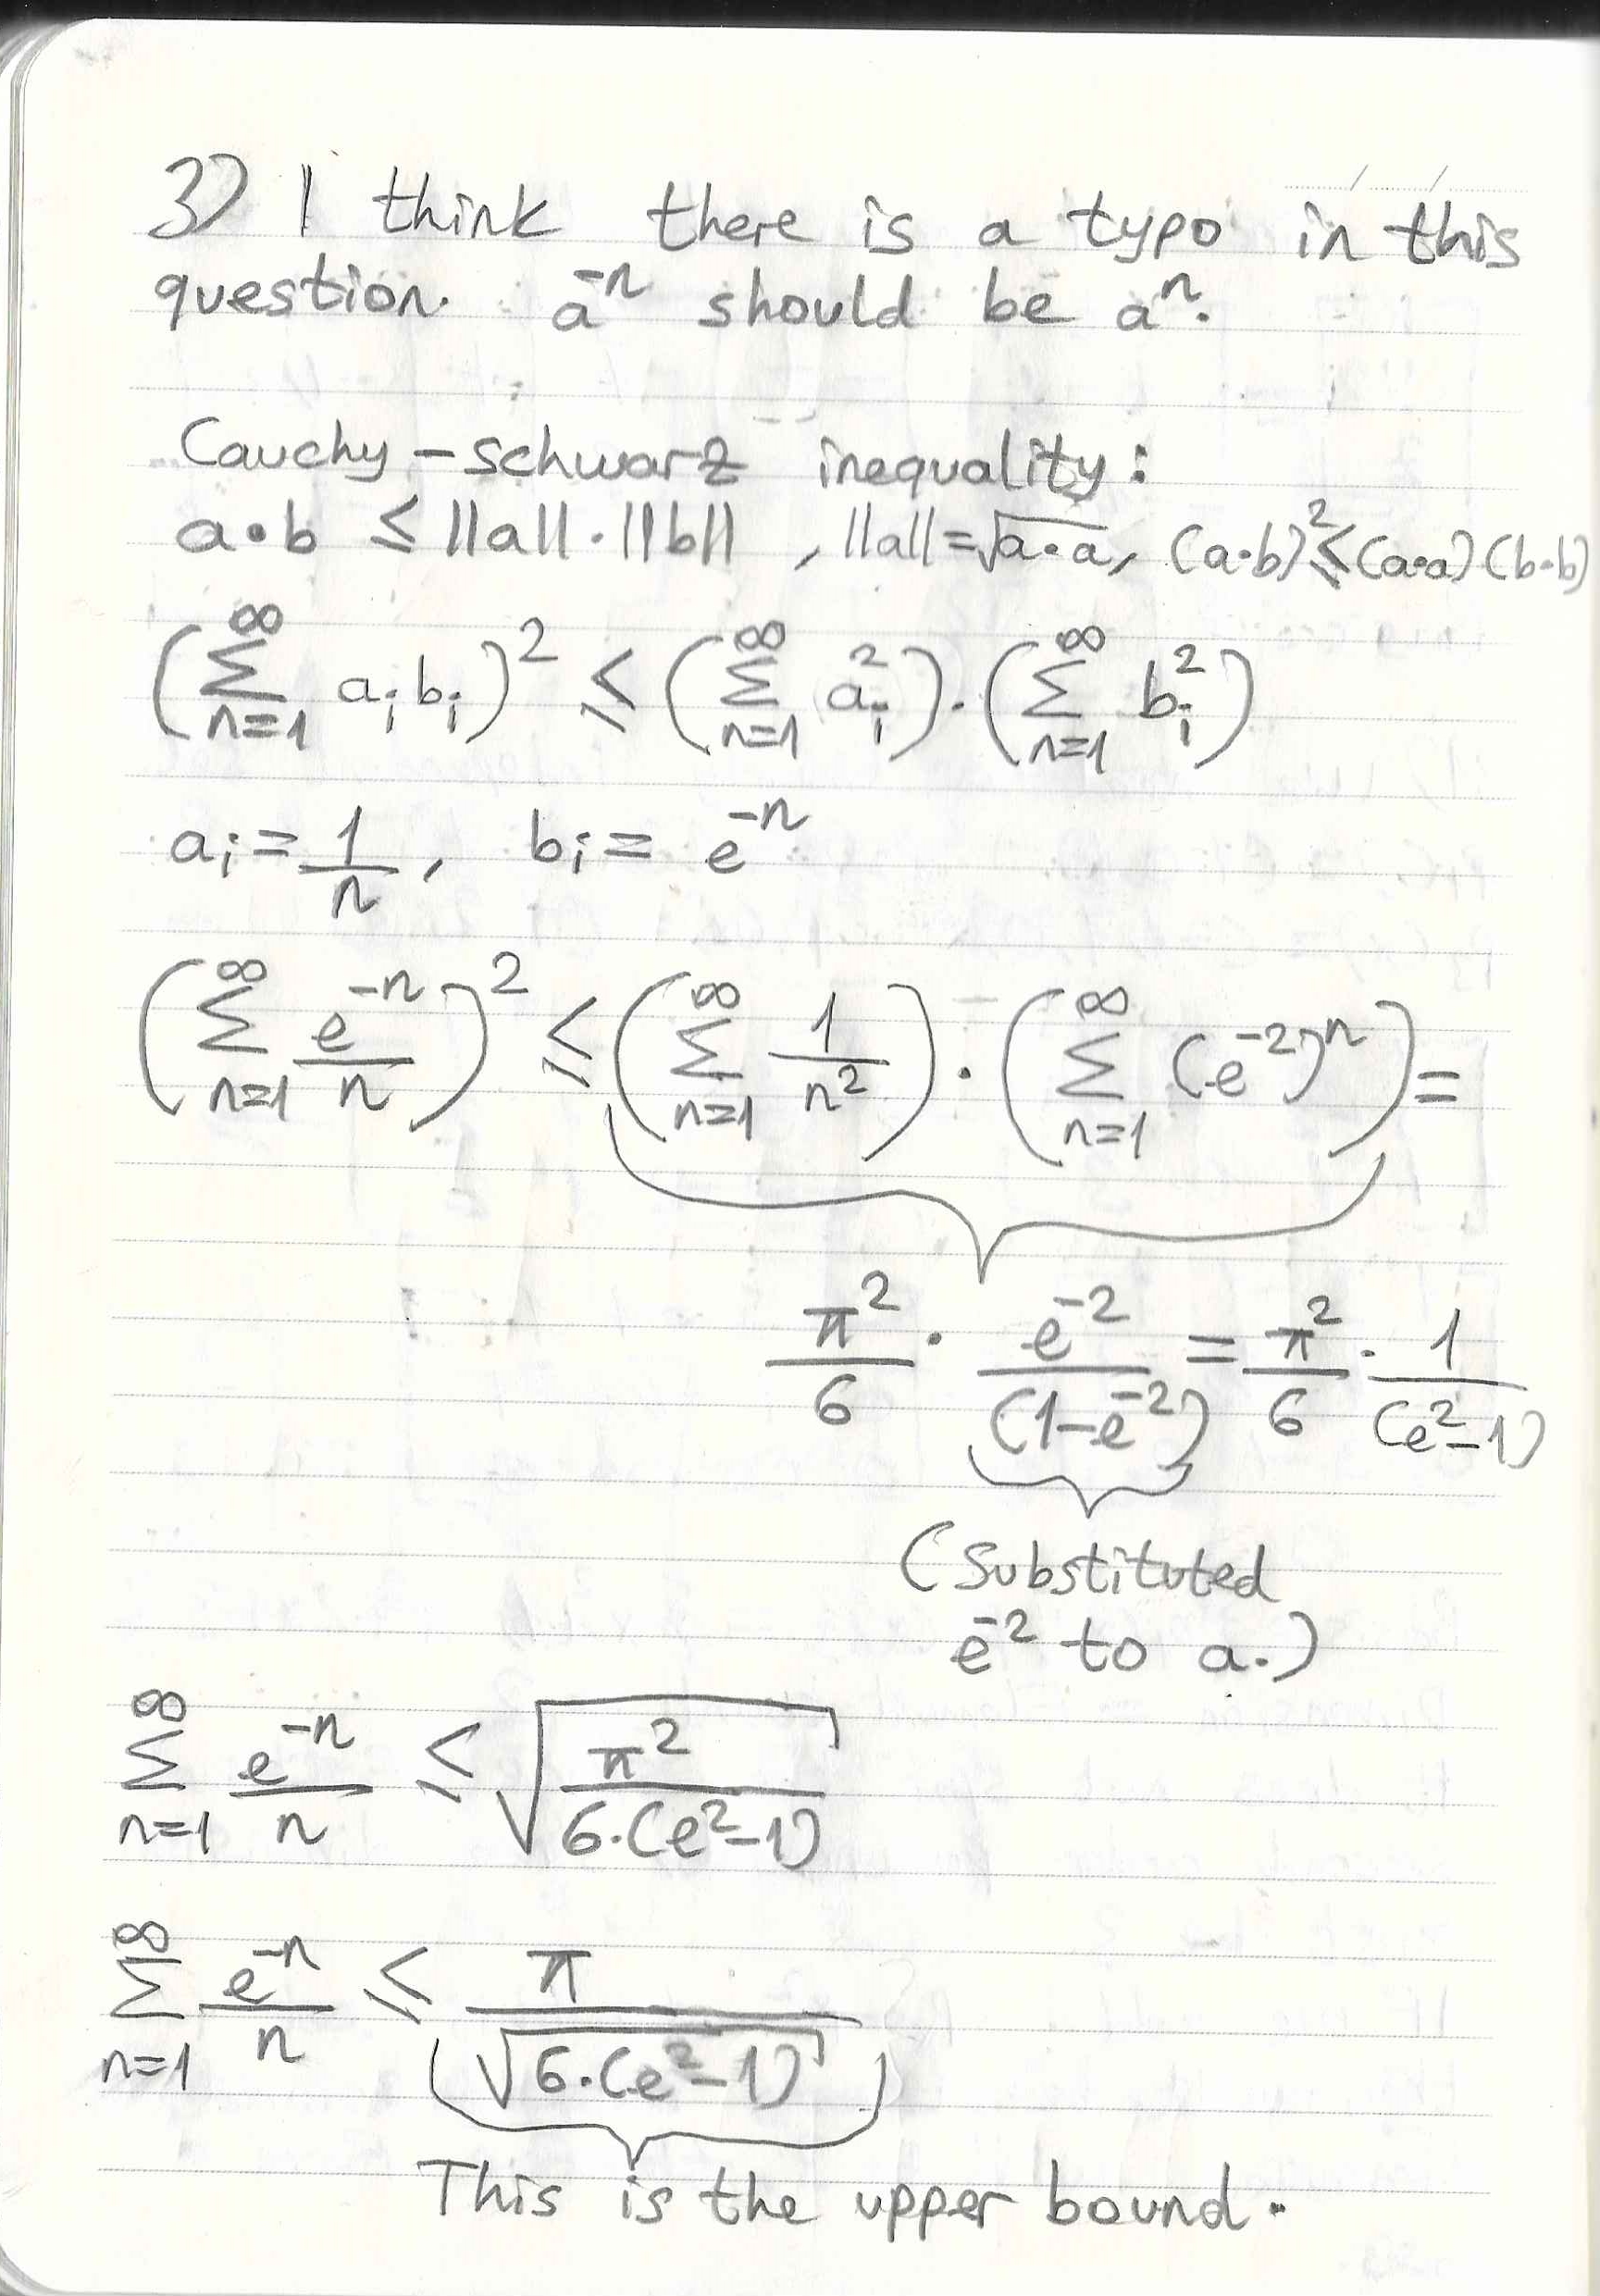 3) I think there is a typo in this
question. a^{-n} should be a^n.
Cauchy-schwarz inequality:
a·b ≤ ||a||·||b|| , ||a||=√(a·a), (a·b)^2 ≤ (a·a)(b·b)
(∑_{n=1}^{∞} a_i b_i)^2 ≤ (∑_{n=1}^{∞} a_i^2)·(∑_{n=1}^{∞} b_i^2)
a_i = 1/n, b_i = e^{-n}
(∑_{n=1}^{∞} e^{-n}/n)^2 ≤ (∑_{n=1}^{∞} 1/n^2)·(∑_{n=1}^{∞} (e^{-2})^n) =
π^2/6 · e^{-2}/(1-e^{-2}) = π^2/6 · 1/(e^2-1)
(Substituted
e^{-2} to a.)
∑_{n=1}^{∞} e^{-n}/n ≤ √(π^2/(6·(e^2-1)))
∑_{n=1}^{∞} e^{-n}/n ≤ π/√(6·(e^2-1))
This is the upper bound.